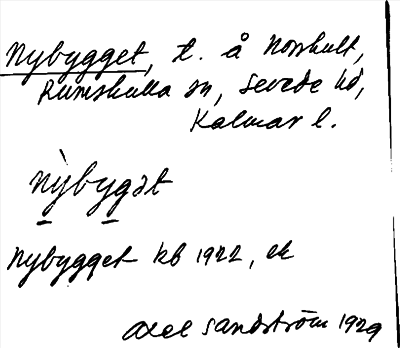 Nybygget, t. å Norrhult,
Rumskulla sn, Sevede hd,
Kalmar l.
Nỳbygət
Nybygget kb 1922, ek
Axel Sandström 1929